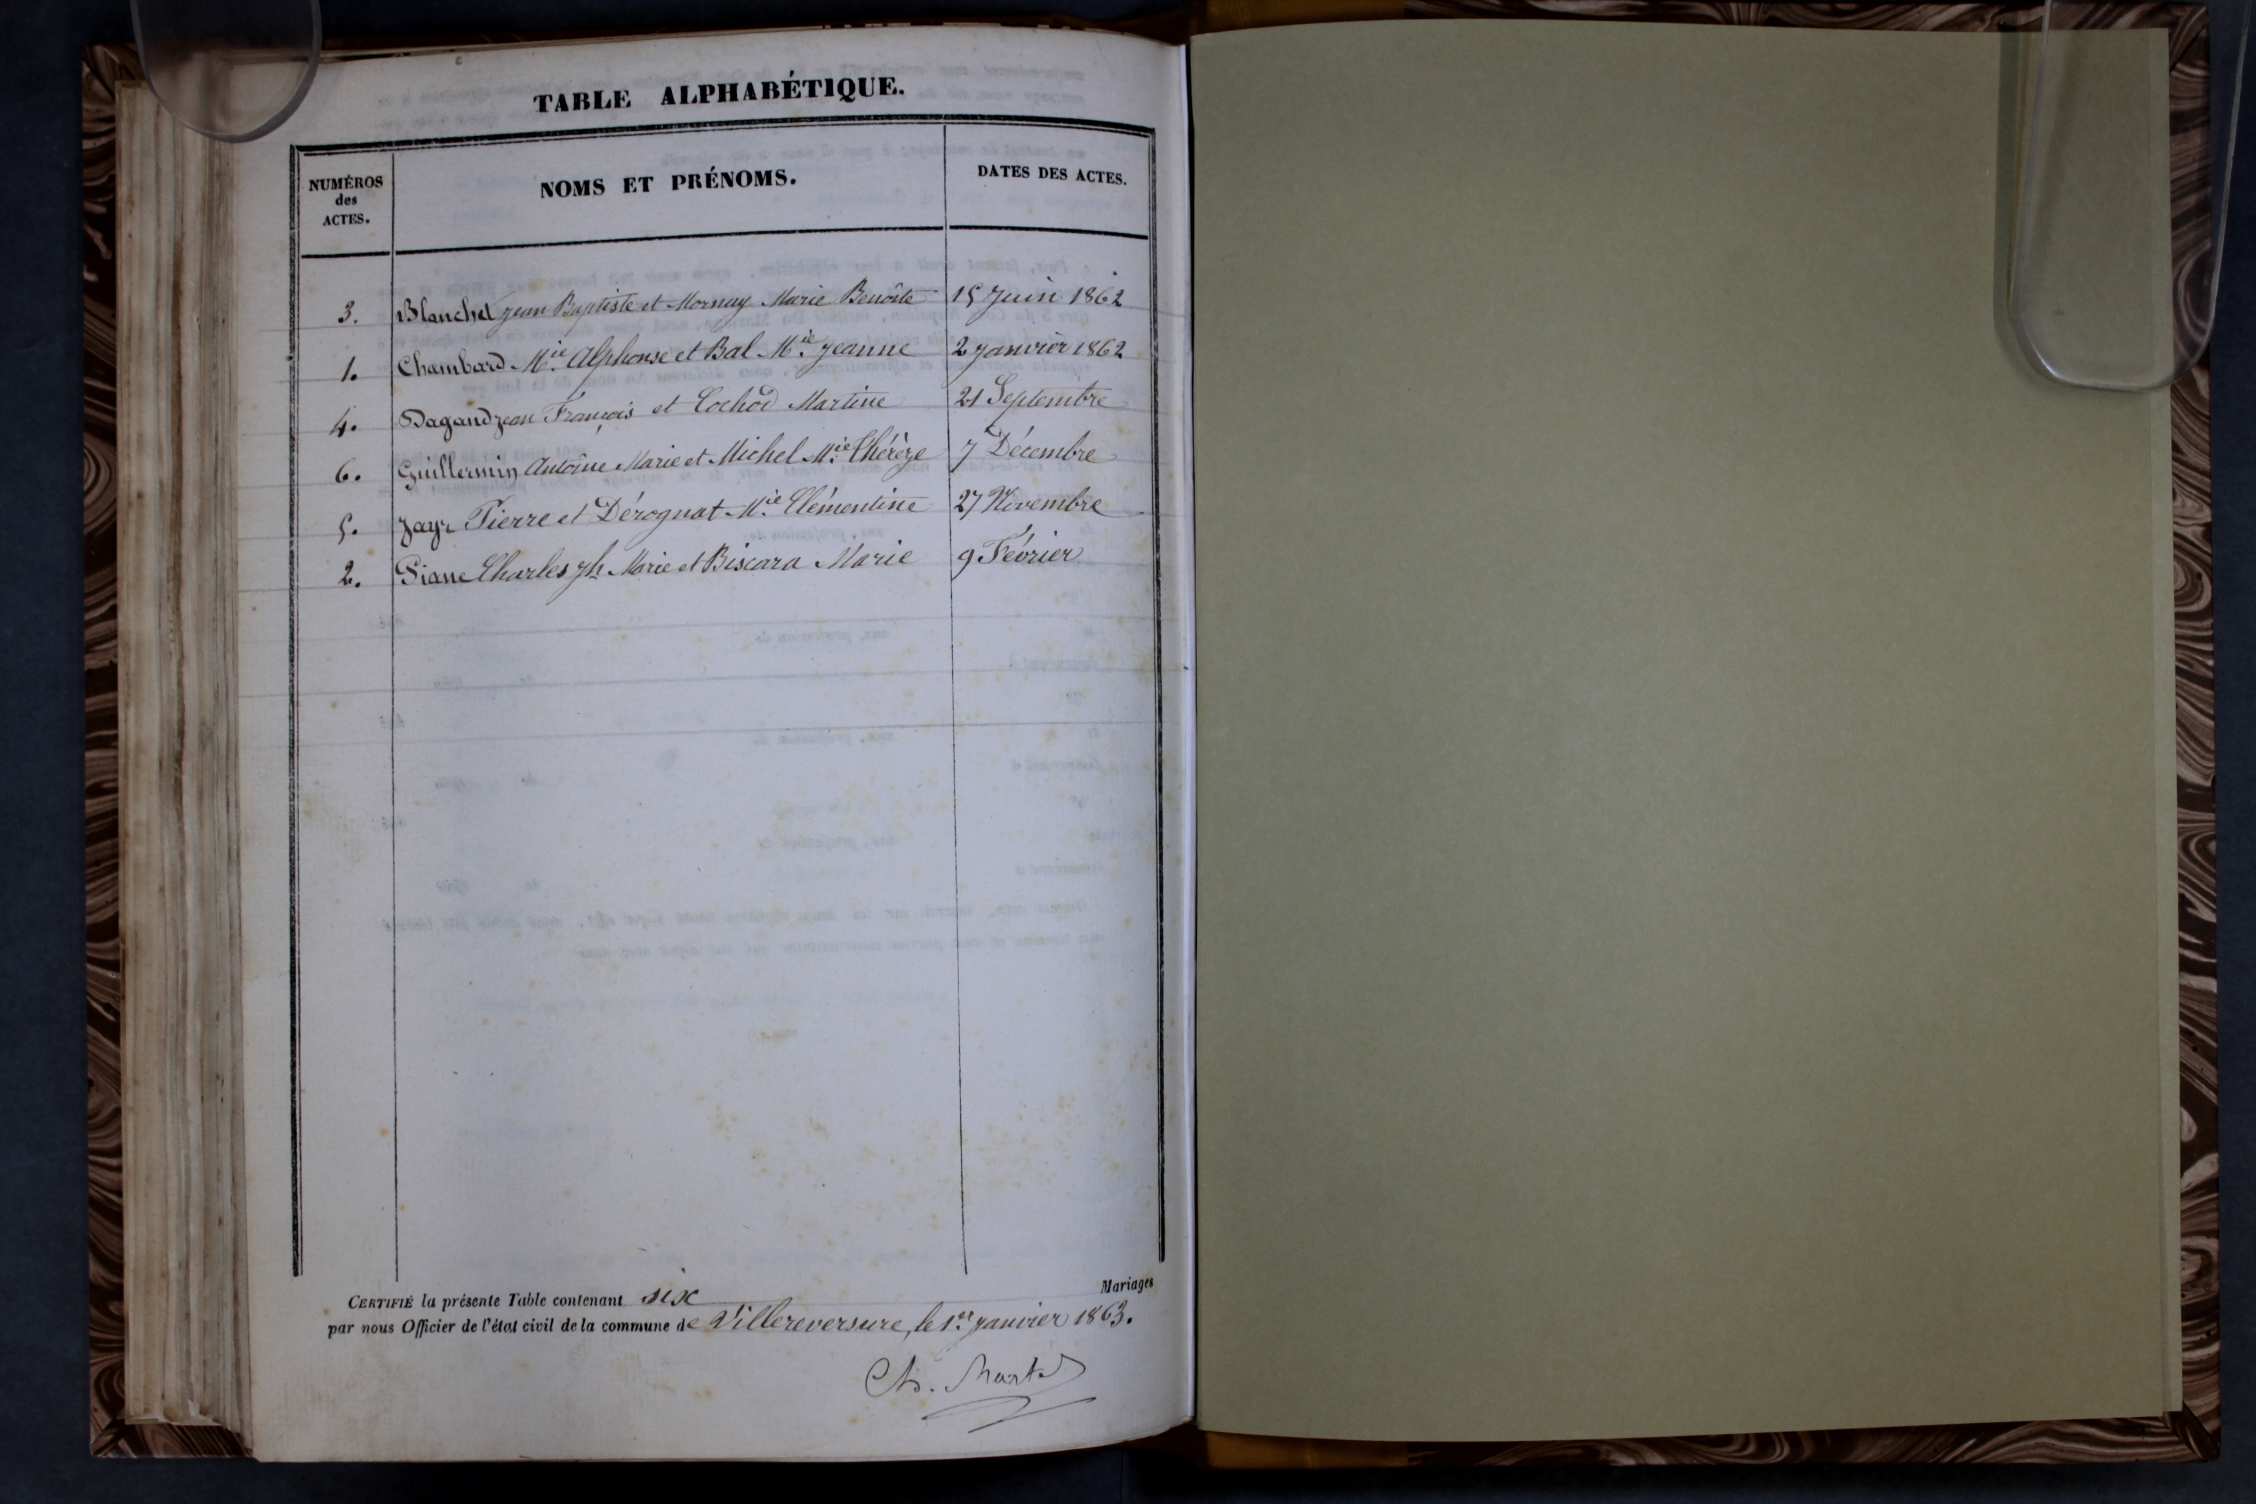 TABLE ALPHABÉTIQUE.
NUMÉROS des ACTES.
NOMS ET PRÉNOMS.
DATES DES ACTES.
3. Blanchet Jean Baptiste et Mornay Marie Benoîte 15 Juin 1862
1. Chambard Mie Alphonse et Bal Mie Jeanne 2 Janvier 1862
4. Dagand Jean François et Cochod Martine 21 Septembre
6. Guillermin Antoine Marie et Michel Mie Thérèze 7 Décembre
5. Jayr Pierre et Dérognat Mie Clémentine 27 Novembre
2. Piane Charles Jh Marie et Biscara Marie 9 Février
CERTIFIÉ la présente Table contenant six Mariages
par nous Officier de l'état civil de la commune de Villereversure, le 1er Janvier 1863.